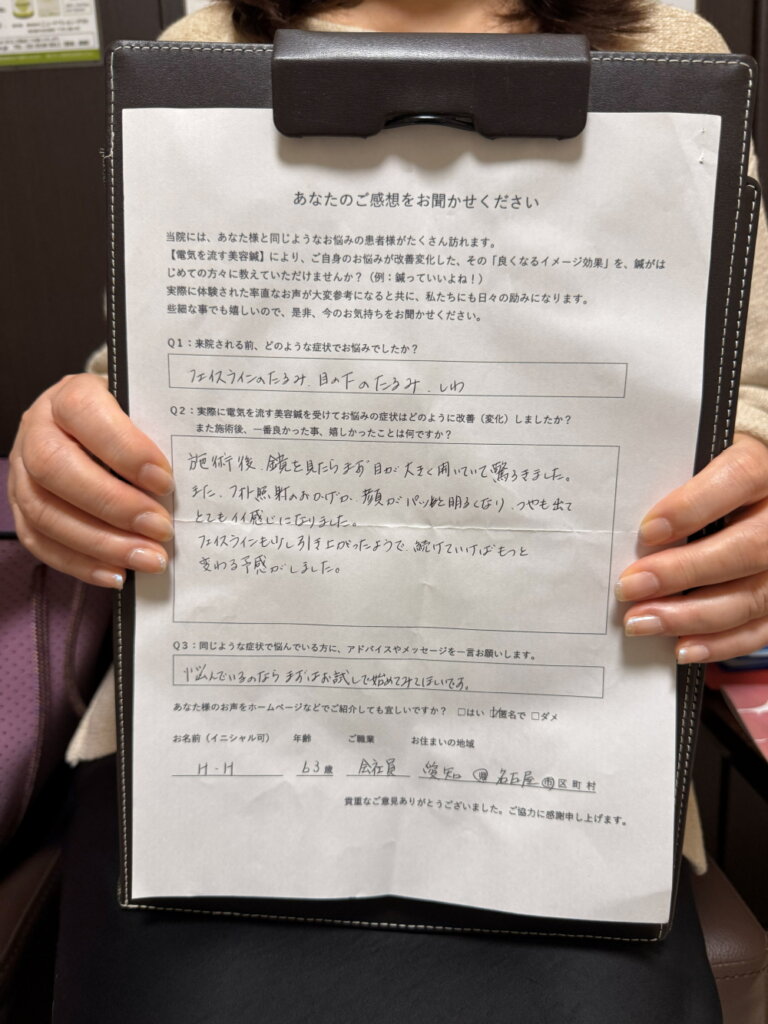 あなたのご感想をお聞かせください
当院には、あなた様と同じようなお悩みの患者様がたくさん訪れます。
【電気を流す美容鍼】により、ご自身のお悩みが改善変化した、その「良くなるイメージ効果」を、鍼がは
じめての方々に教えていただけませんか？（例：鍼っていいよね！）
実際に体験された率直なお声が大変参考になると共に、私たちにも日々の励みになります。
些細な事でも嬉しいので、是非、今のお気持ちをお聞かせください。
Q1：来院される前、どのような症状でお悩みでしたか？
フェイスラインのたるみ、目の下のたるみ、しわ
Q2：実際に電気を流す美容鍼を受けてお悩みの症状はどのように改善（変化）しましたか？
また施術後、一番良かった事、嬉しかったことは何ですか？
施術後、鏡を見たらまず目が大きく開いていて驚ろきました。
また、フォト照射のおかげか、顔がパッと明るくなり、つやも出て
とてもイイ感じになりました。
フェイスラインも少し引き上がったようで、続けていけばもっと
変わる予感がしました。
Q3：同じような症状で悩んでいる方に、アドバイスやメッセージを一言お願いします。
悩んでいるのなら まずはお試しで始めてみてほしいです。
あなた様のお声をホームページなどでご紹介しても宜しいですか？ □はい ☑匿名で □ダメ
お名前（イニシャル可） 年齢 ご職業 お住まいの地域
H・H 63歳 会社員 愛知 県 名古屋 市区町村
貴重なご意見ありがとうございました。ご協力に感謝申し上げます。